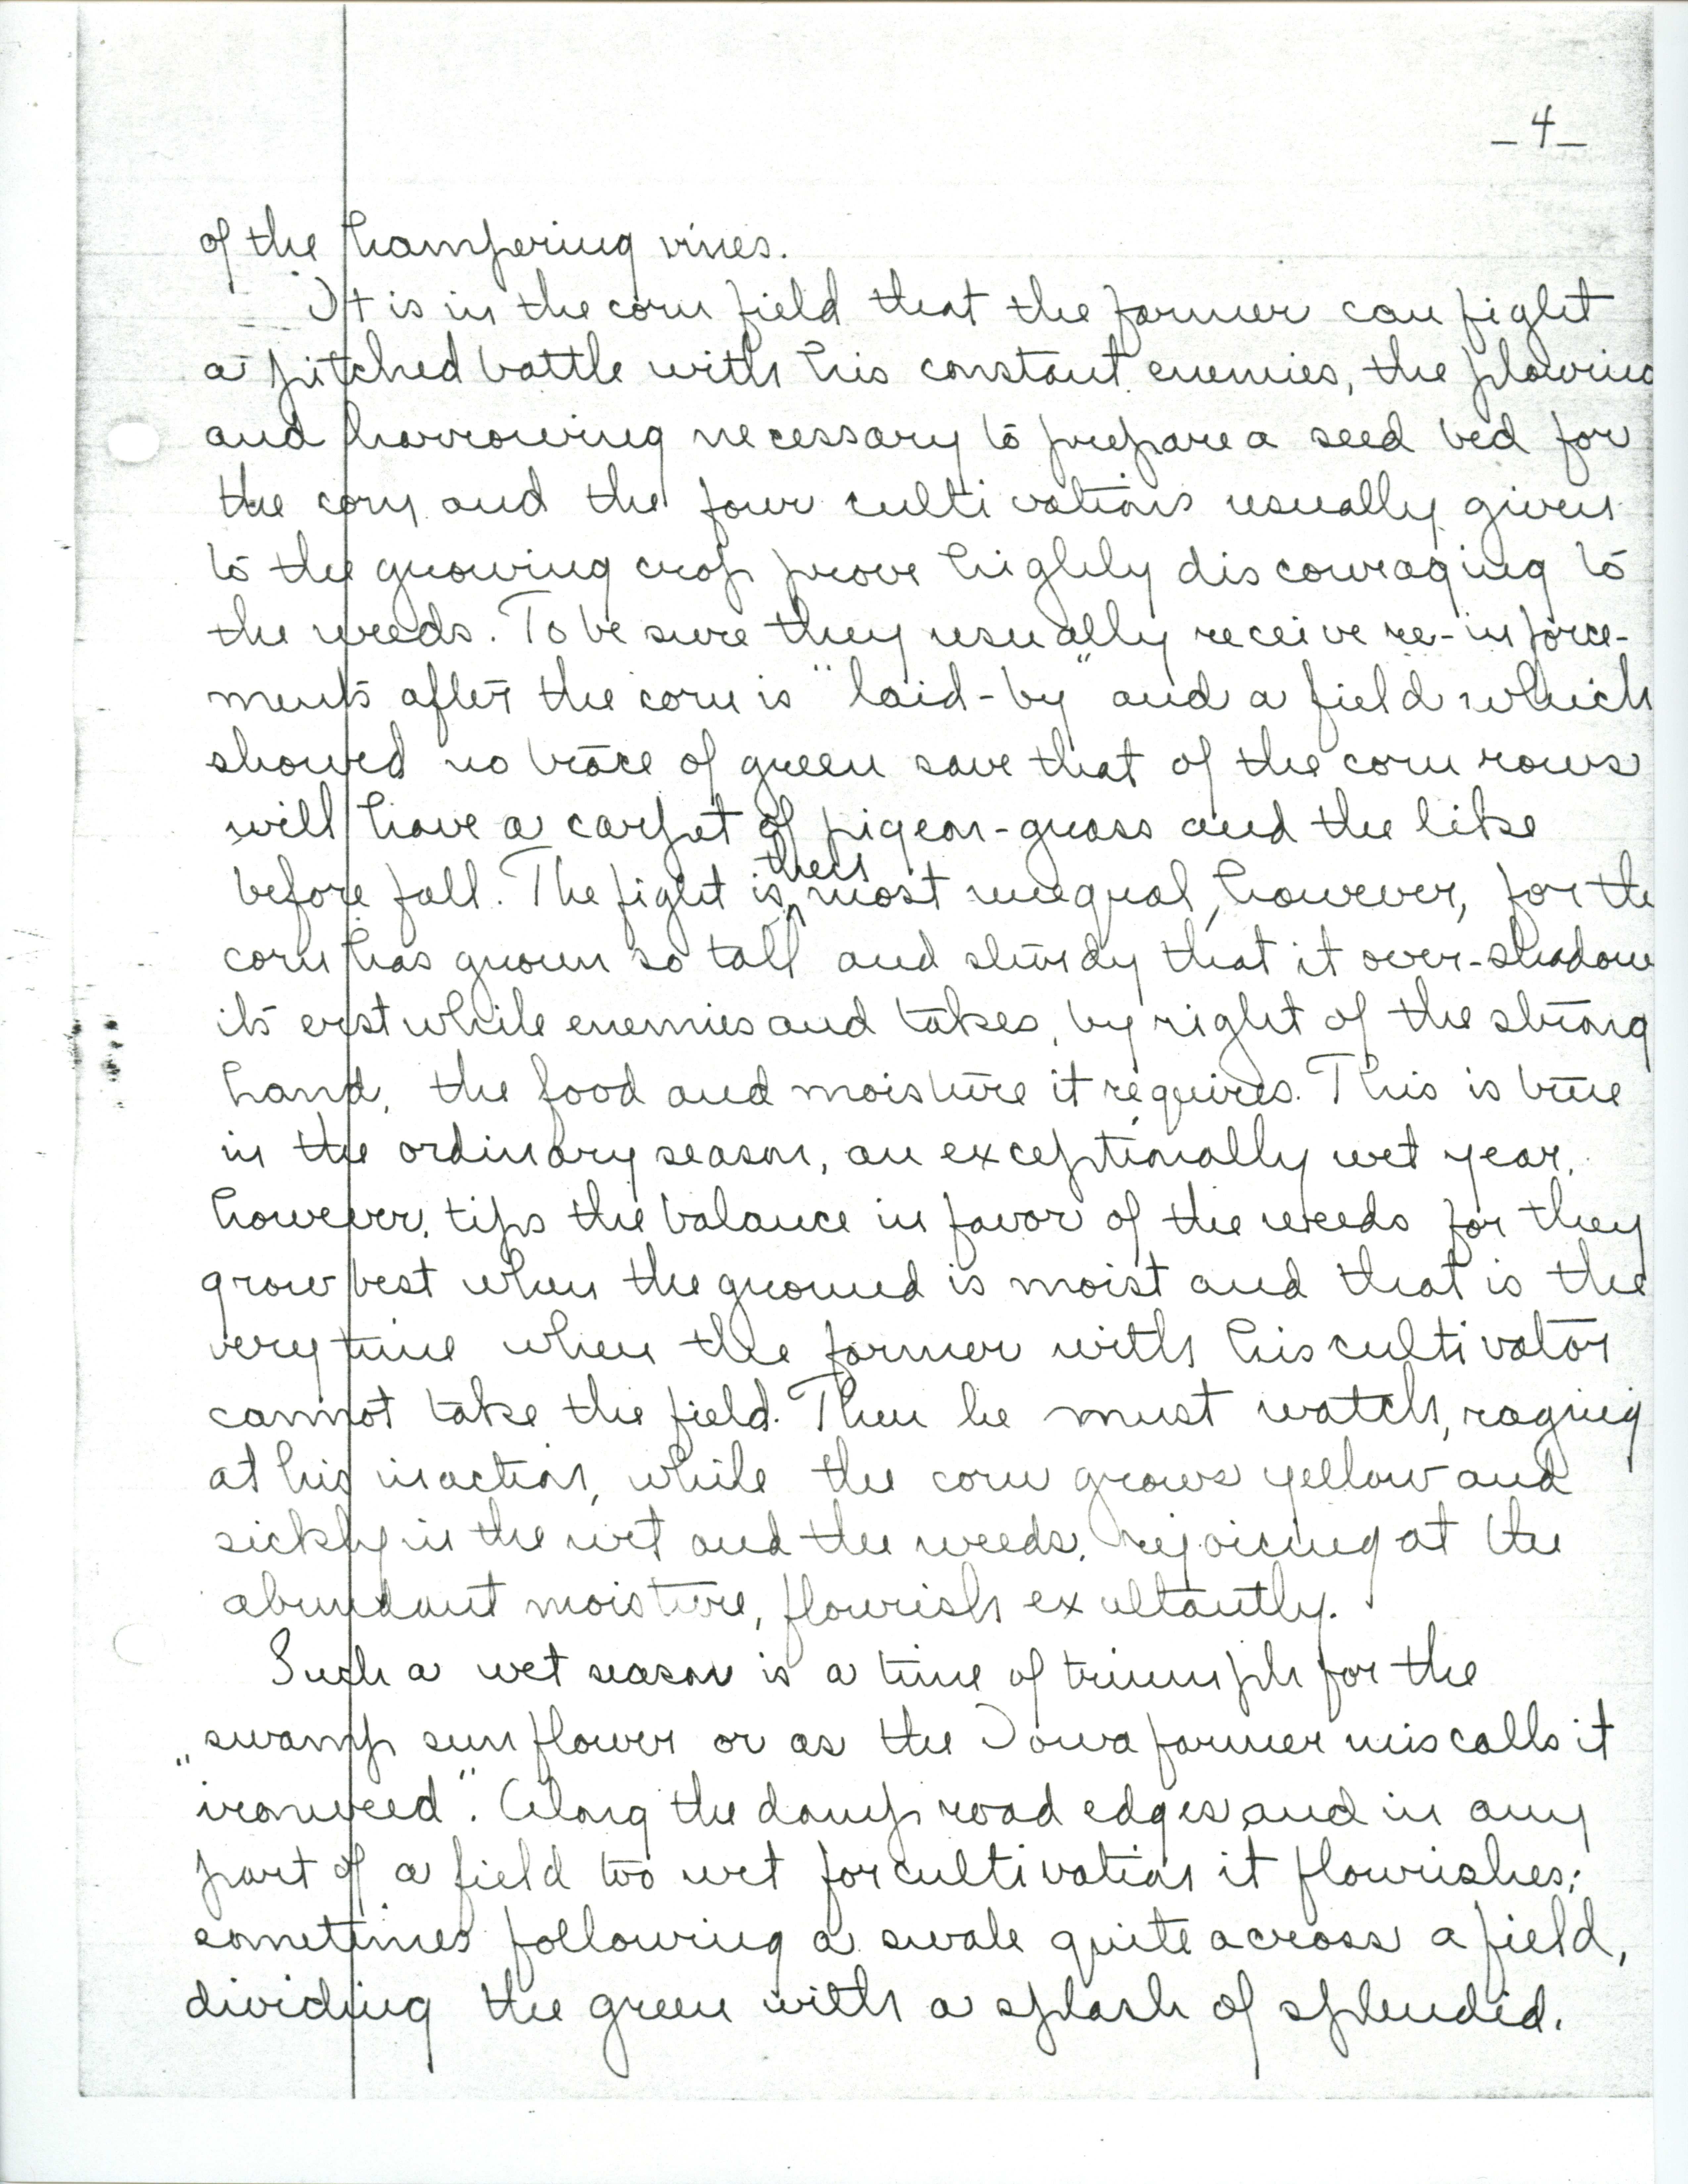 _4_
of the hampering vines.
It is in the corn field that the farmer can fight
a pitched battle with his constant enemies, the plowing
and harrowing necessary to prepare a seed bed for
the corn and the four cultivations usually given
to the growing crop prove highly discouraging to
the weeds. To be sure they usually receive re-inforce-
ments after the corn is "laid-by" and a field which
showed no trace of green save that of the corn rows
will have a carpet of pigeon-grass and the like
then
before fall. The fight is most unequal, however, for the
corn has grown so tall and sturdy that it over-shadow
its erstwhile enemies and takes, by right of the strong
hand, the food and moisture it requires. This is true
in the ordinary season, an exceptionally wet year,
however, tips the balance in favor of the weeds for they
grow best when the ground is moist and that is the
very time when the farmer with his cultivator
cannot take the field. Then he must watch, raging
at his inaction, while the corn grows yellow and
sickly in the wet and the weeds, rejoicing at the
abundant moisture, flourish exultantly.
Such a wet season is a time of triumph for the
swamp sunflower or as the Iowa farmer miscalls it
"ironweed". Along the damp road edges and in any
part of a field too wet for cultivation it flourishes;
sometimes following a swale quite across a field,
dividing the green with a splash of splendid.